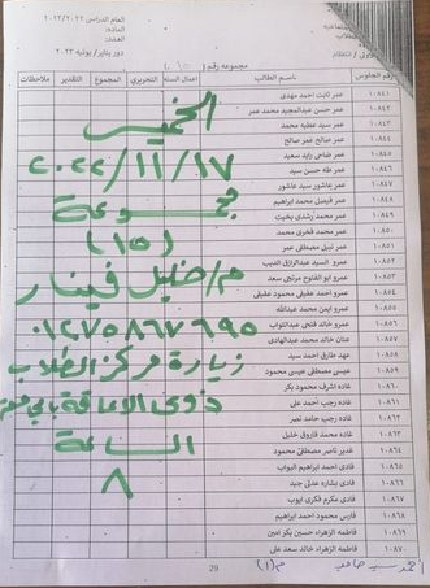 العام الدراسى ٢٠٢٢/٢٠٢١
المادة:
العدد:
دور يناير/ يونيه ٢٠٢٣
انتظام
مجموعة رقم (١٥)
رقم الجلوس اسم الطالب اعمال السنة التحريرى المجموع التقدير ملاحظات
١٠٨٤١ عمر ثابت احمد مهدى
١٠٨٤٢ عمر حسن عبدالمجيد محمد عمر
١٠٨٤٣ عمر سيد عطيه محمد
١٠٨٤٤ عمر صالح عمر صالح
١٠٨٤٥ عمر ضاحى زايد سعيد
١٠٨٤٦ عمر طه حسن سيد
١٠٨٤٧ عمر عاشور سيد عاشور
١٠٨٤٨ عمر فيصل محمد ابراهيم
١٠٨٤٩ عمر محمد رشدى بخيت
١٠٨٥٠ عمر محمد فخرى محمد
١٠٨٥١ عمر نبيل مصطفى عمر
١٠٨٥٢ عمرو السيد عبدالرازق
١٠٨٥٣ عمرو ابوالفتوح مرتجى سعد
١٠٨٥٤ عمرو احمد عفيفى محمود عفيفى
١٠٨٥٥ عمرو ايمن محمد عبدالله
١٠٨٥٦ عمرو خالد فتحى عبدالتواب
١٠٨٥٧ عنان خالد محمد عبدالهادى
١٠٨٥٨ عهد طارق احمد سيد
١٠٨٥٩ عيسى مصطفى عيسى محمود
١٠٨٦٠ غاده اشرف محمود بكر
١٠٨٦١ غاده رجب احمد على
١٠٨٦٢ غاده رجب حامد نصر
١٠٨٦٣ غاده محمد فاروق خليل
١٠٨٦٤ غدير ناصر مصطفى محمود
١٠٨٦٥ فادى احمد ابراهيم البواب
١٠٨٦٦ فادى بشاره عدلى جيد
١٠٨٦٧ فادى مكرم فكرى ايوب
١٠٨٦٨ فارس محمود احمد ابراهيم
١٠٨٦٩ فاطمه الزهراء حسين بكر
١٠٨٧٠ فاطمه الزهراء خالد سعد على
الخميس
٢٠٢٢/١١/١٧
مجموعة
(١٥)
م/ خليل فينار
٠١٢٧٥٨٦٧٦٩٥
زيارة مركز الطلاب
ذوى الاعاقة
الساعة
٨
20